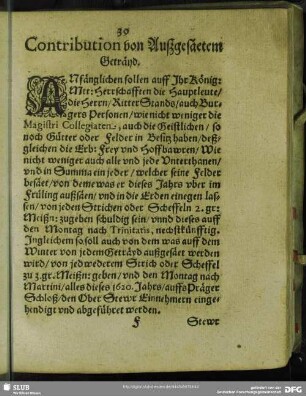 39
Contribution von Außgesäetem
Geträyd.
ANfänglichen sollen auff Ihr König:
Mtt: Herrschafften die Hauptleute/
die Herrn/ Ritter Stands/ auch Bur-
gers Personen/ wie nicht weniger die
Magistri Collegiaten/ auch die Geistlichen/ so
noch Gütter oder Felder in Besitz haben/ deß-
gleichen die Erb: Frey vnd Hoffbawren/ Wie
nicht weniger auch alle vnd jede Vnterthanen/
vnd in Summa ein jeder/ welcher seine Felder
besäet/ von deme was er dieses Jahrs vber im
Früling außsäen/ vnd in die Erden einegen las-
sen/ von jeden Strichen oder Scheffeln 2. gr:
Meißn: zugeben schuldig sein/ vnnd dieses auff
den Montag nach Trinitatis, nechstkünfftig.
Ingleichem so soll auch von dem was auff dem
Winter von jedem Geträyd außgesäet werden
wird/ von jedwederem Strich oder Scheffel
zu 3. gr: Meißn: geben/ vnd den Montag nach
Martini/ alles dieses 1620. Jahrs/ auffs Präger
Schloß/ den Ober Stewr Einnehmern einge-
hendigt vnd abgeführet werden.
F Stewr
SLUB
DFG